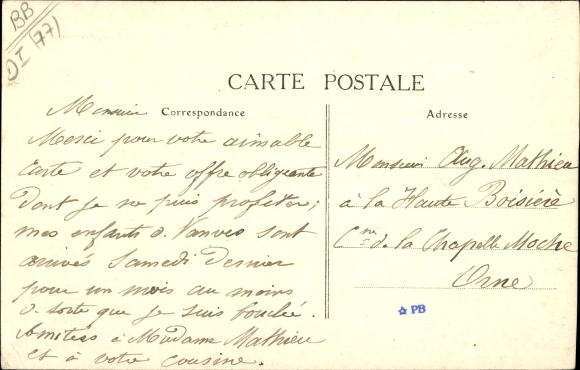 BB
DI (77)
CARTE POSTALE
Correspondance
Adresse
Monsieur
Merci pour votre aimable
Carte et votre offre obligeante
Dont je ne puis profiter;
mes enfants d. Vanves sont
arrivés Samedi Dernier
pour un mois au moins
d. sorte que je suis bouclé.
Amitiés à Madame Mathieu
et à votre cousine.
Monsieur Aug. Mathieu
à la Haute Boisière
Cne de la Chapelle Moche
Orne
☆ PB